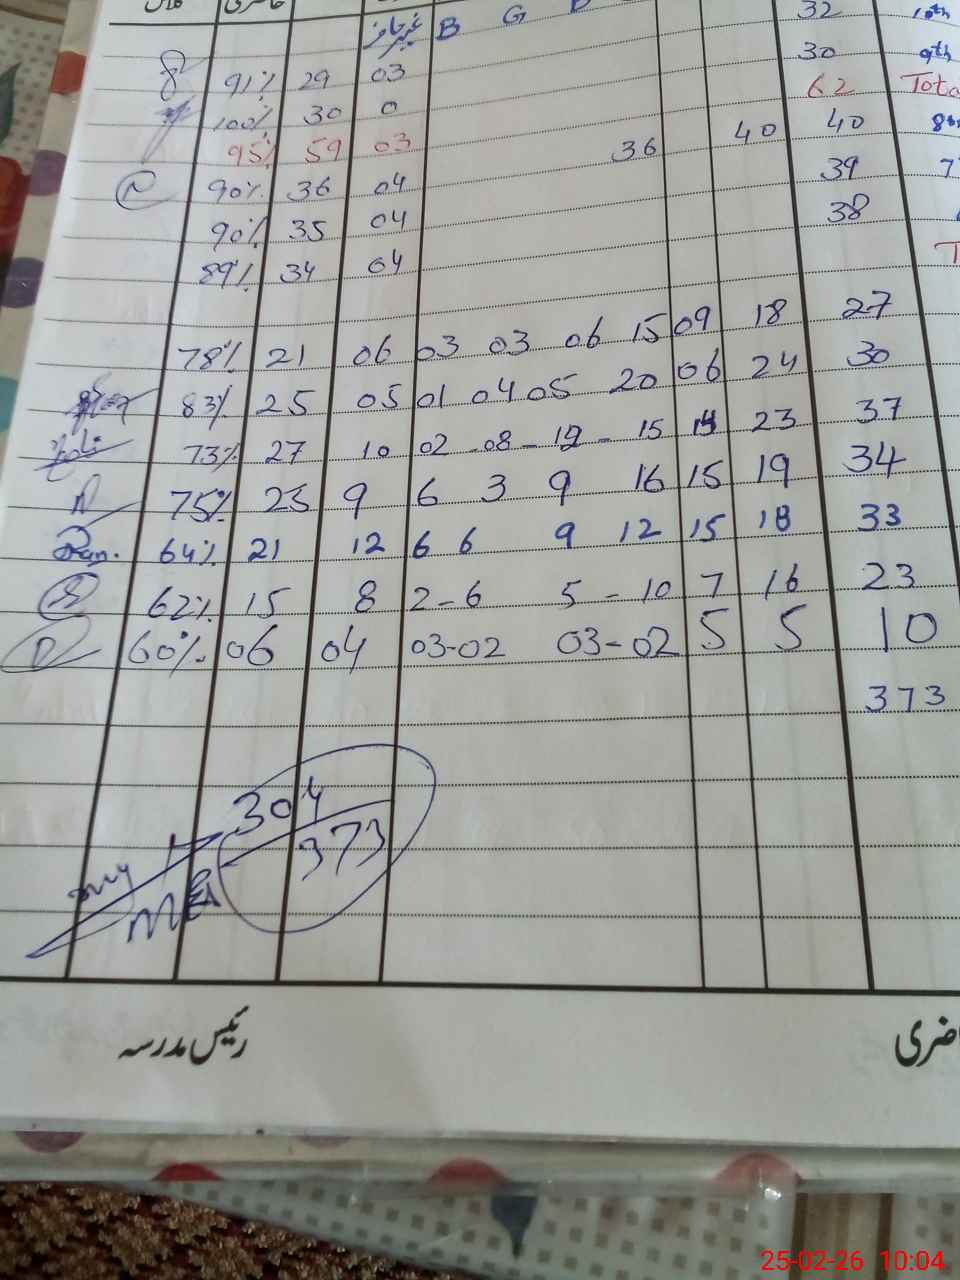 غیر حاضر B G B 32 10th
91% 29 03 30 9th
100% 30 0 62
95% 59 03 36 40 40 8th
90% 36 04 39
90% 35 04 38
89% 34 04
78% 21 06 03 03 06 15 09 18 27
83% 25 05 01 04 05 20 06 24 30
73% 27 10 02 - 08 - 12 - 15 14 23 37
75% 25 9 6 3 9 16 15 19 34
64% 21 12 6 6 9 12 15 18 33
62% 15 8 2 - 6 5 - 10 7 16 23
60% 06 04 03-02 03-02 5 5 10
373
304
373
رئیس مدرسہ
25-02-26 10:04